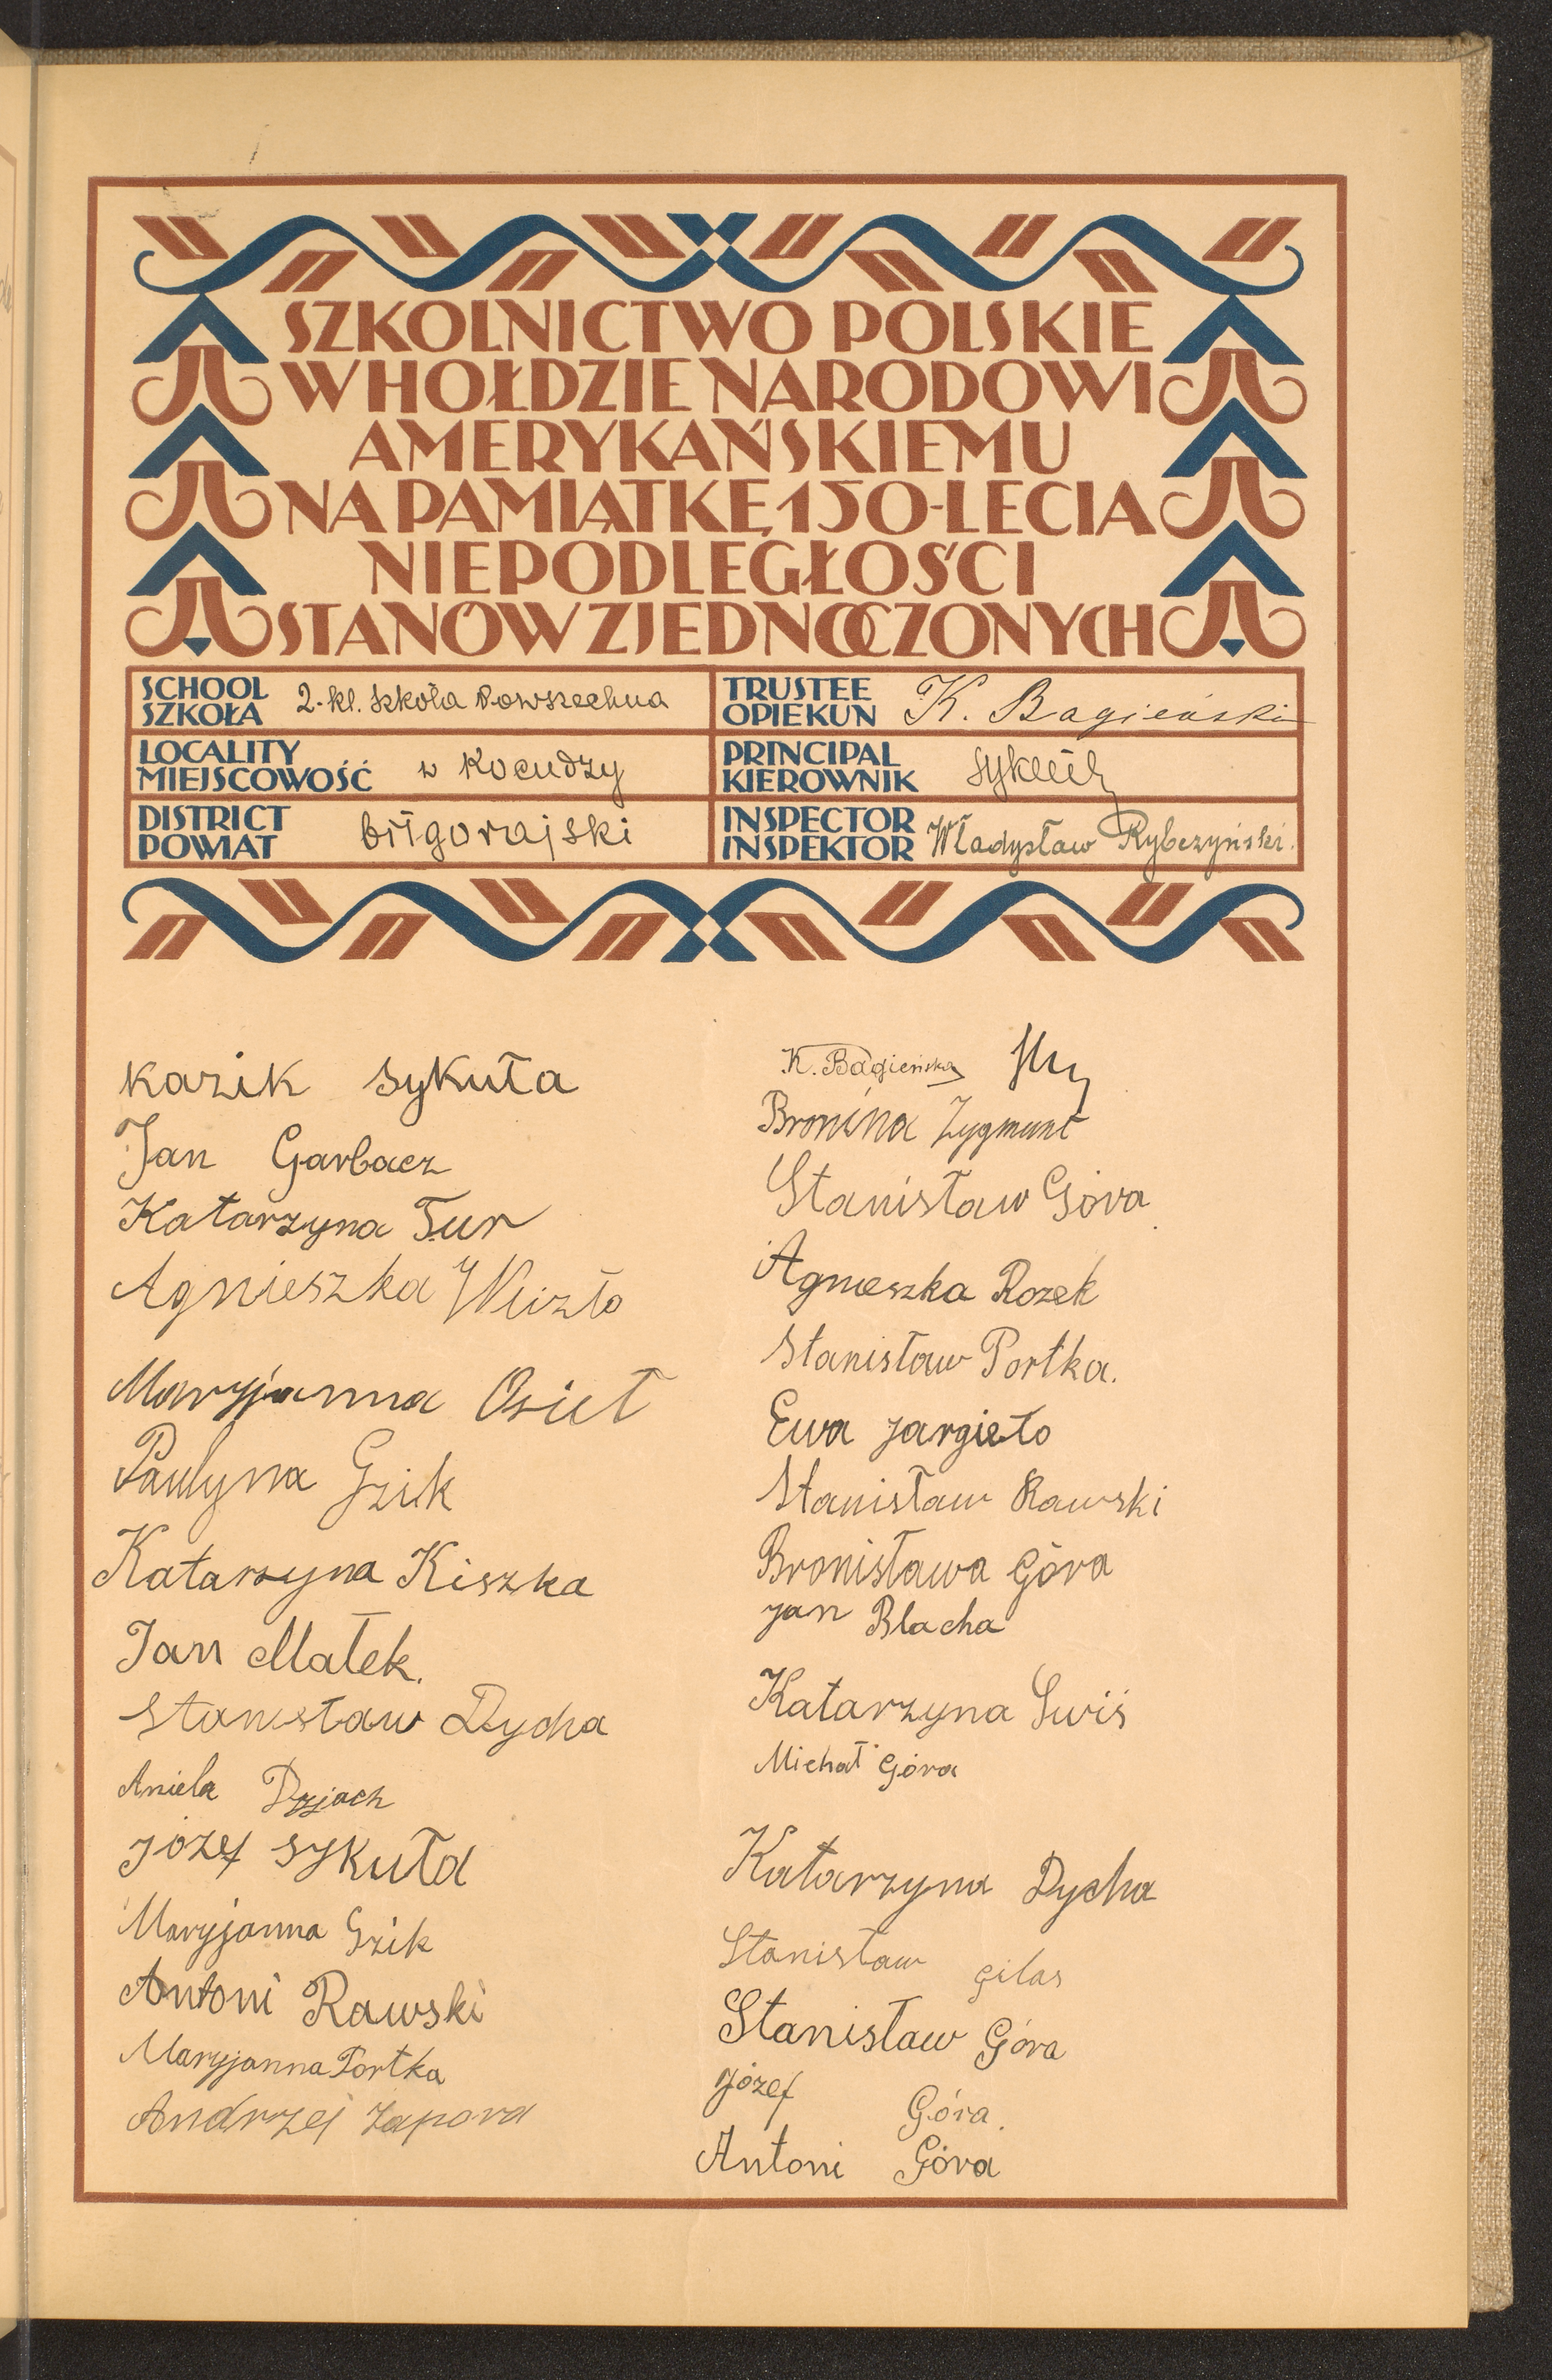 SZKOLNICTWO POLSKIE
W HOŁDZIE NARODOWI
AMERYKAŃSKIEMU
NA PAMIĄTKĘ 150-LECIA
NIEPODLEGŁOŚCI
STANÓW ZJEDNOCZONYCH
SCHOOL
SZKOŁA
2-kl. Szkoła Powszechna
TRUSTEE
OPIEKUN
K. Bagieński
LOCALITY
MIEJSCOWOŚĆ
w Kocudzy
PRINCIPAL
KIEROWNIK
DISTRICT
POWIAT
biłgorajski
INSPECTOR
INSPEKTOR
Władysław Rybczyński.
Kazik Sykuła
Jan Garbacz
Katarzyna Tur
Agnieszka Wlizło
Maryjanna Osieł
Paulyna Gzik
Katarzyna Kiszka
Jan Małek.
Stanisław Dycha
Aniela Dyjach
Józef Sykuła
Maryjanna Gzik
Antoni Rawski
Maryjanna Portka
Andrzej Zapora
K. Bagieńska
Bronina Zygmunt
Stanisław Góra
Agnieszka Rozek
Stanisław Portka.
Ewa Jargieło
Stanisław Rawski
Bronisława Góra
Jan Blacha
Katarzyna Swiś
Michał Góra
Katarzyna Dycha
Stanisław Gilas
Stanisław Góra
Józef Góra.
Antoni Góra